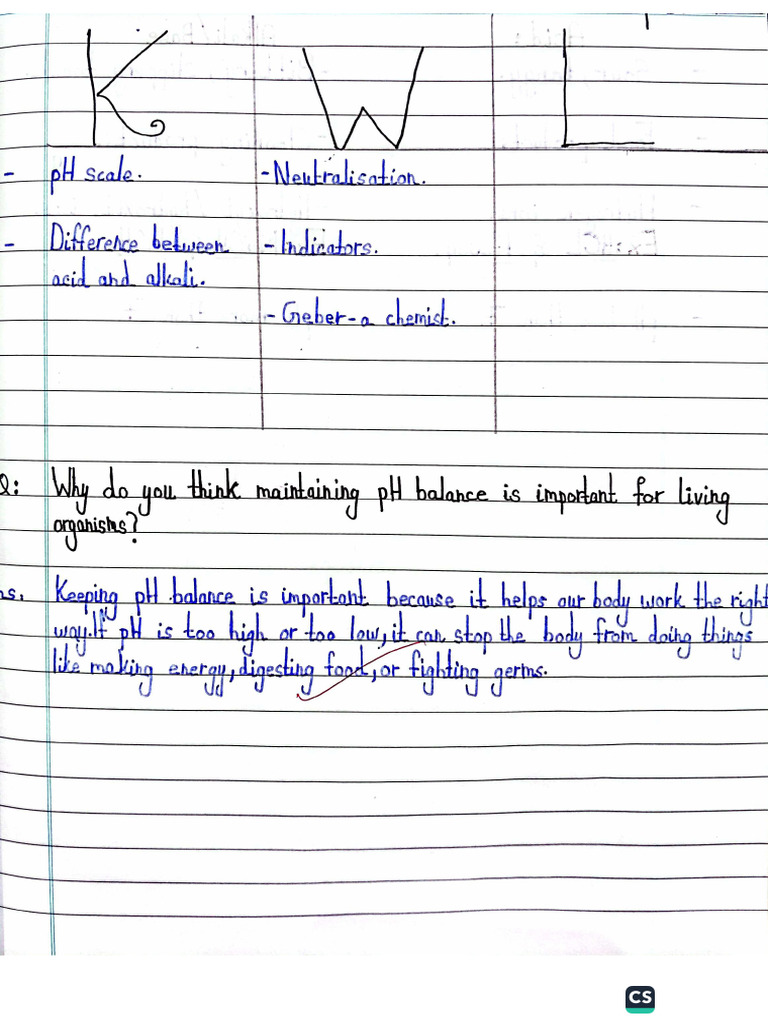 K W L
- pH scale. - Neutralisation.
- Difference between - Indicators.
acid and alkali.
- Geber - a chemist.
Q: Why do you think maintaining pH balance is important for living
organisms?
ns. Keeping pH balance is important because it helps our body work the right
way. If pH is too high or too low, it can stop the body from doing things
like making energy, digesting food, or fighting germs.
CS